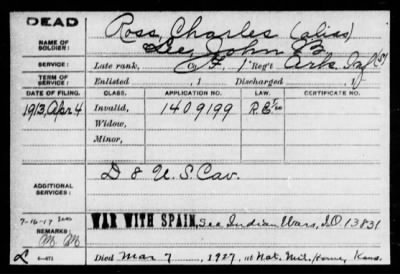 DEAD
NAME OF SOLDIER: Ross, Charles (alias)
Lee, John B.
SERVICE: Late rank, Co F, 1 Reg't Ark. Inf
TERM OF SERVICE: Enlisted , 1 Discharged , 1
DATE OF FILING. CLASS. APPLICATION NO. LAW. CERTIFICATE NO.
1913, Apr 4 Invalid, 1409199
Widow,
Minor,
ADDITIONAL SERVICES: D 8 U.S. Cav.
7-16-17 WAR WITH SPAIN, See Indian Wars, I.O 13831
REMARKS:
6-471 Died Mar 7, 1927, at Nat. Mil. Home, Kans.